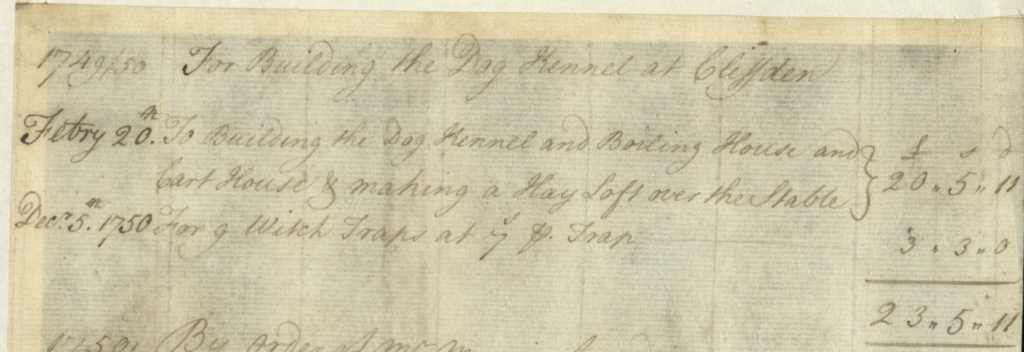 1749/50 For Building the Dog Kennel at Cliffden
£ s d
Febry 20.th To Building the Dog Kennel and Boiling House and
Cart House & making a Hay Loft over the Stable } 20 " 5 " 11
Decr. 5.th 1750 For 9 Witch Traps at 7s P. Trap 3 " 3 " 0
23 " 5 " 11
By order of Mr